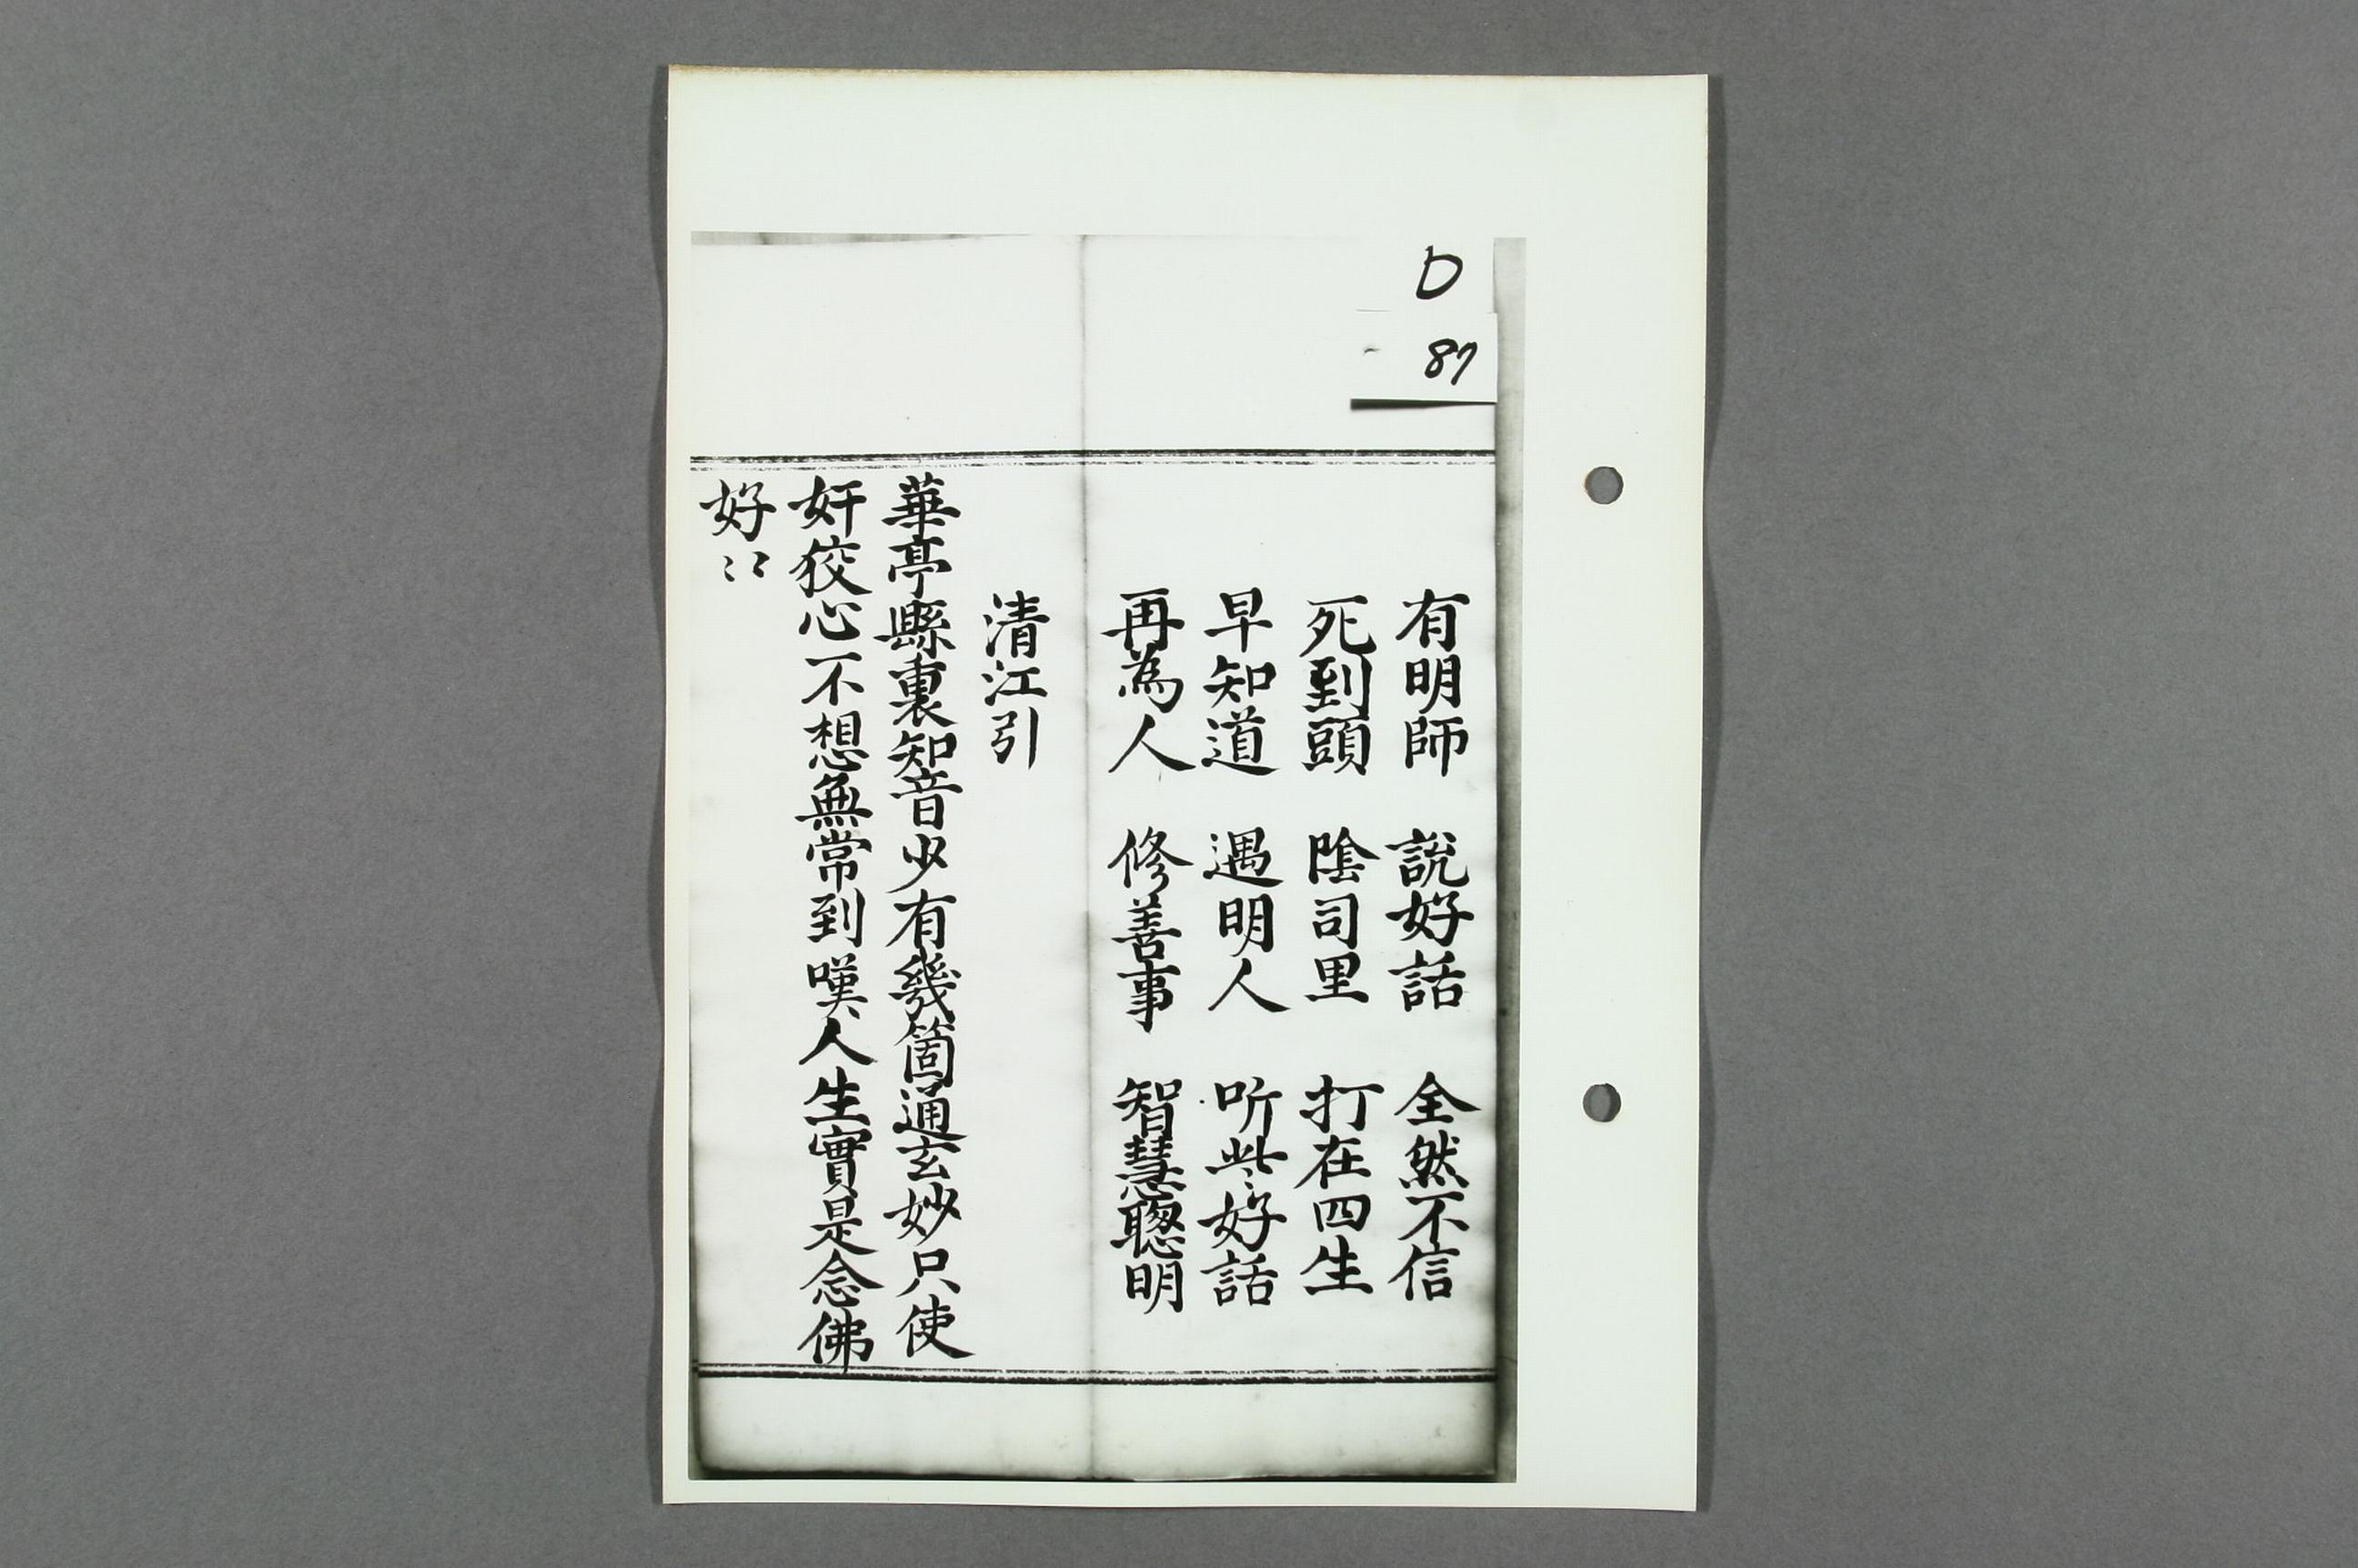 D
87
有明師 說好話 全然不信
死到頭 陰司里 打在四生
早知道 遇明人 听些好話
再為人 修善事 智慧聰明
清江引
華亭縣裏知音少有幾箇通玄妙只使
奸狡心不想無常到嘆人生實是念佛
好〻〻